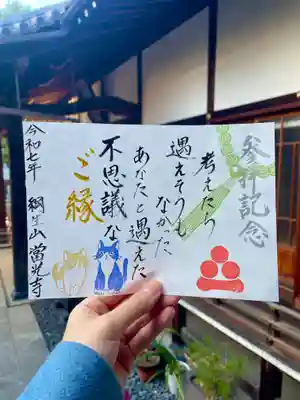 参拝記念
考えたら
遇えそうも
なかった
あなたと遇えた
不思議な
ご縁
令和七年 網生山 當光寺